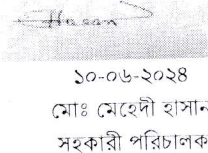 Hasan
১০-০৬-২০২৪
মোঃ মেহেদী হাসান
সহকারী পরিচালক